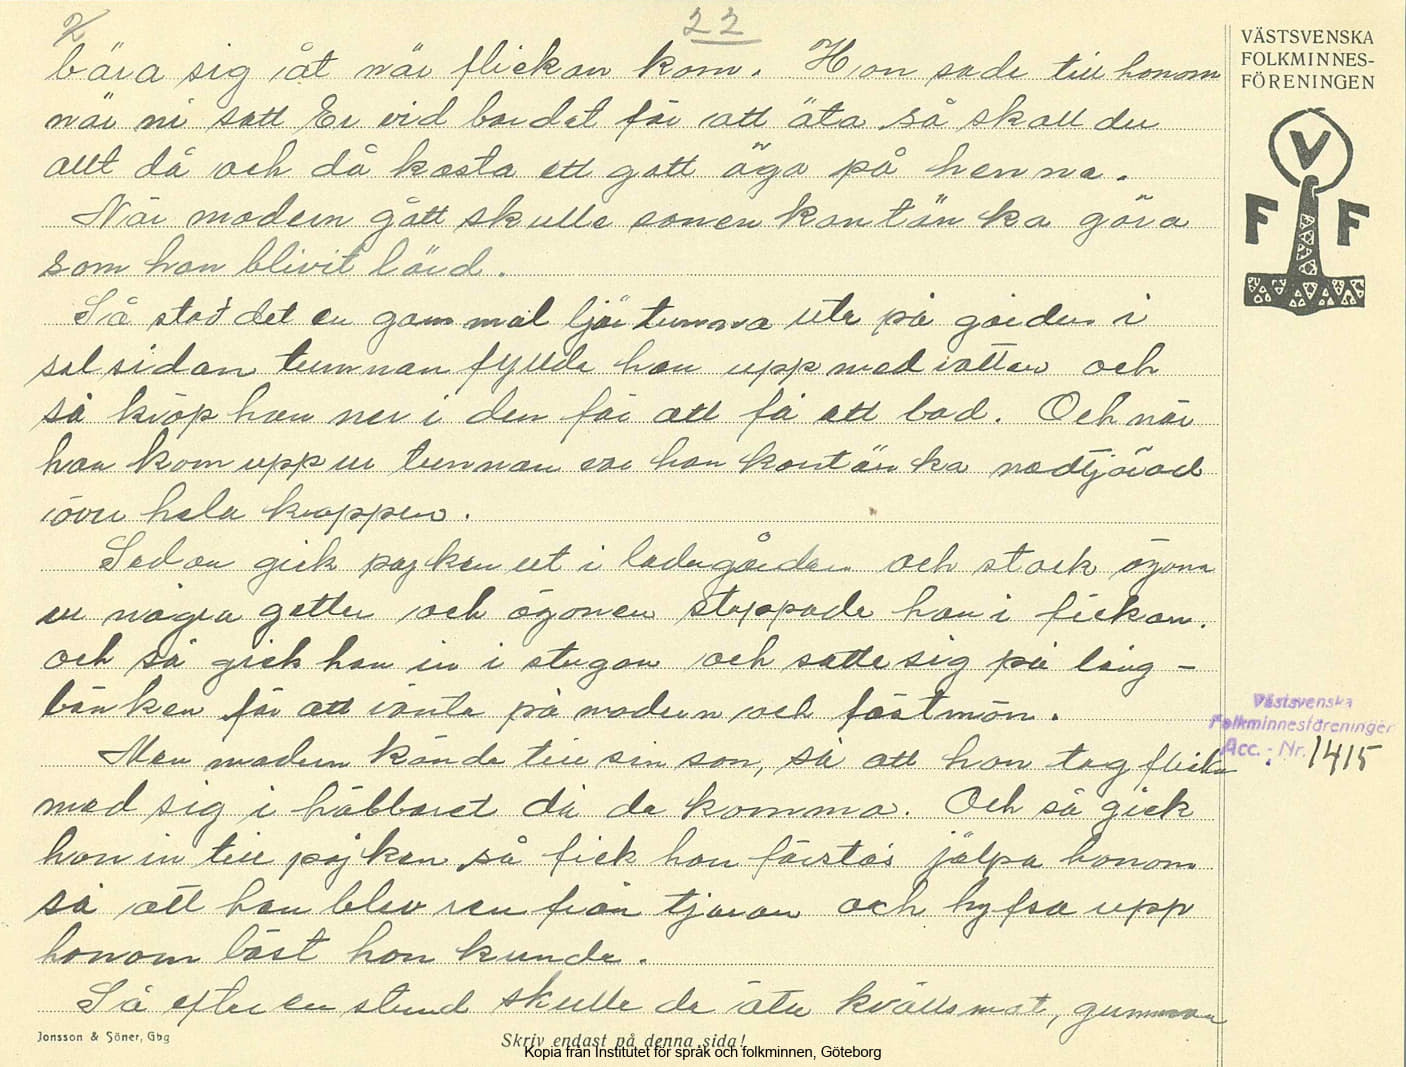 22
bära sig åt när flickan kom. Hon sade till honom
när ni satt Er vid bordet för att äta så skall du
allt då och då kasta ett gott öga på henne.
När modern gått skulle sonen kantänka göra
som han blivit lärd.
Så stod det en gammal tjärtunna ute på gården i
solsidan tunnan fyllde han upp med vatten och
så kröp han ner i den för att få ett bad. Och när
han kom upp ur tunnan var han kantänka nedtjärad
över hela kroppen.
Sedan gick pojken ut i ladugården och stack ögona
ur några getter och ögonen stoppade han i fickan.
och så gick han in i stugan och satte sig på lång-
bänken för att vänta på modern och fästmön.
Men modern kände till sin son, så att hon tog flicka
med sig i häbbaret då de komma. Och så gick
hon in till pojken så fick hon förstås jälpa honom
så att han blev ren från tjäran och hyfsa upp
honom bäst hon kunde.
Så efter en stund skulle de äta kvällsmat, gumman
VÄSTSVENSKA
FOLKMINNES-
FÖRENINGEN
V
F F
Västsvenska
Folkminnesföreningen
Acc. - Nr. 1415
Jonsson & Söner, Gbg
Skriv endast på denna sida!
Kopia från Institutet för språk och folkminnen, Göteborg